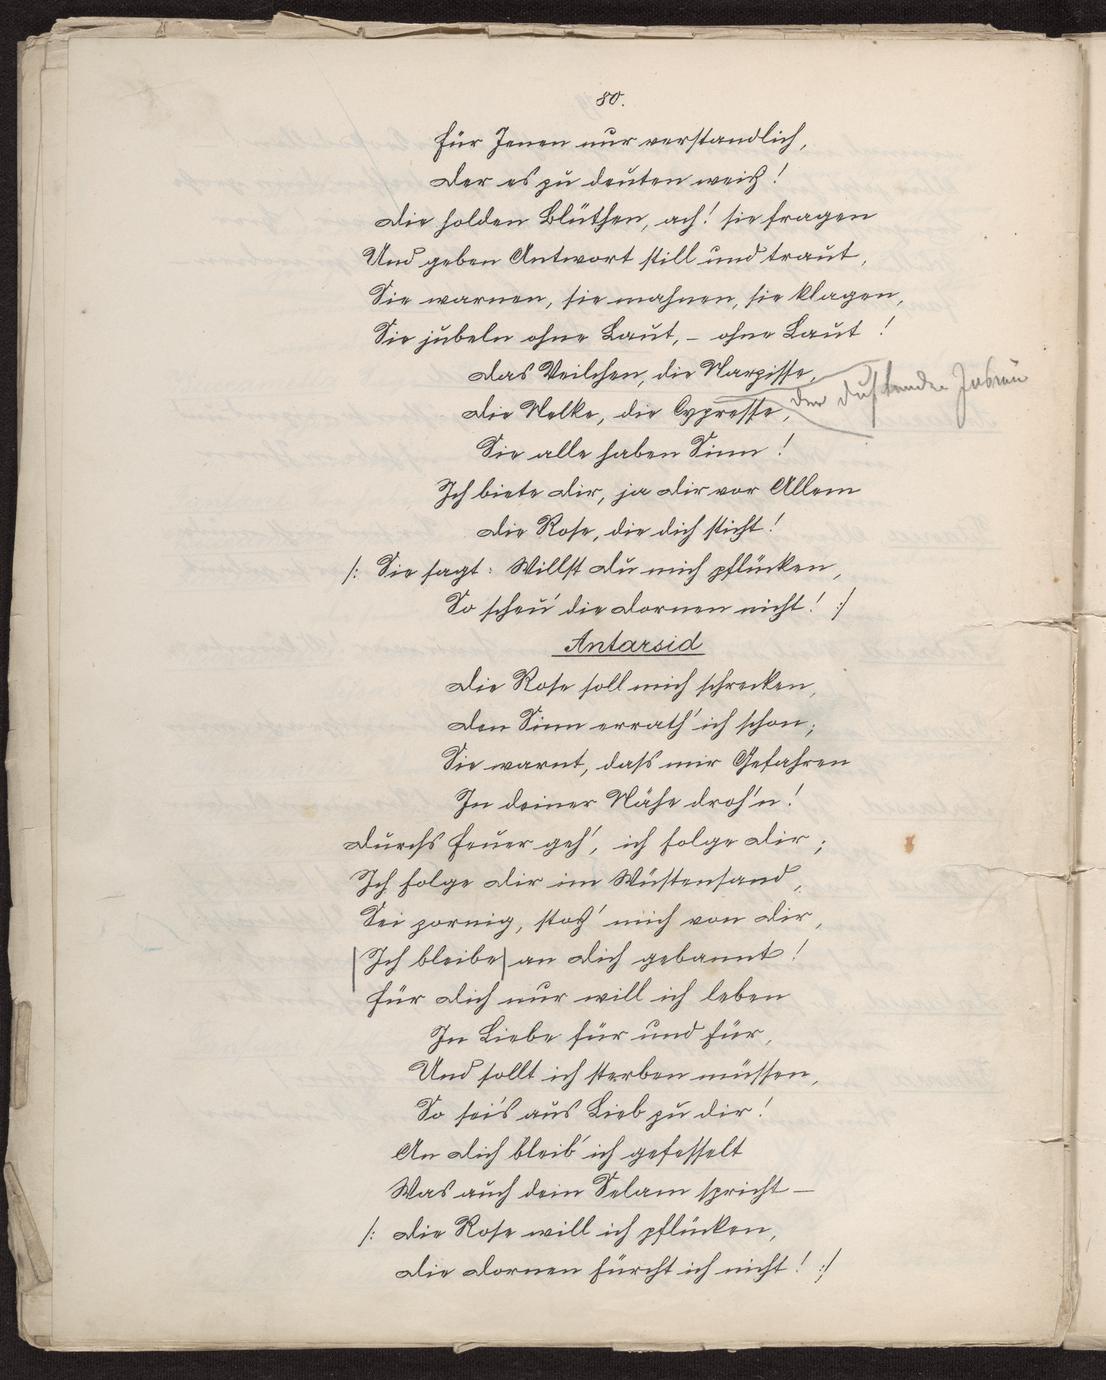 80.
Für Jenen nur verstandlich,
Der es zu deuten weiß!
Die holden Blüthen, ach! sie fragen
Und geben Antwort still und traut,
Sie warnen, sie mahnen, sie klagen,
Sie jubeln ohne Laut, – ohne Laut!
Das Veilchen, die Narzisse,
der duftende
Die Nelke, die Cypresse,
Sie alle haben Sinn!
Ich biete Dir, ja Dir vor Allem
Die Rose, die dich sticht!
/: Sie sagt: Willst Du mich pflücken,
So scheu' die Dornen nicht! :/
Antarsid
Die Rose soll mich schrecken,
Den Sinn errath' ich schon;
Sie warnt, dass mir Gefahren
In deiner Nähe droh'n!
Durchs Feuer geh', ich folge Dir;
Ich folge Dir im Wüstensand,
Sei zornig, stoß' mich von Dir,
|Ich bleibe| an Dich gebannt!
Für Dich nur will ich leben
In Liebe für und für,
Und sollt ich sterben müssen,
So sei's aus Lieb zu dir!
An Dich bleib' ich gefesselt
Was auch dein Selam spricht –
/: Die Rose will ich pflücken,
Die Dornen fürcht ich nicht! :/